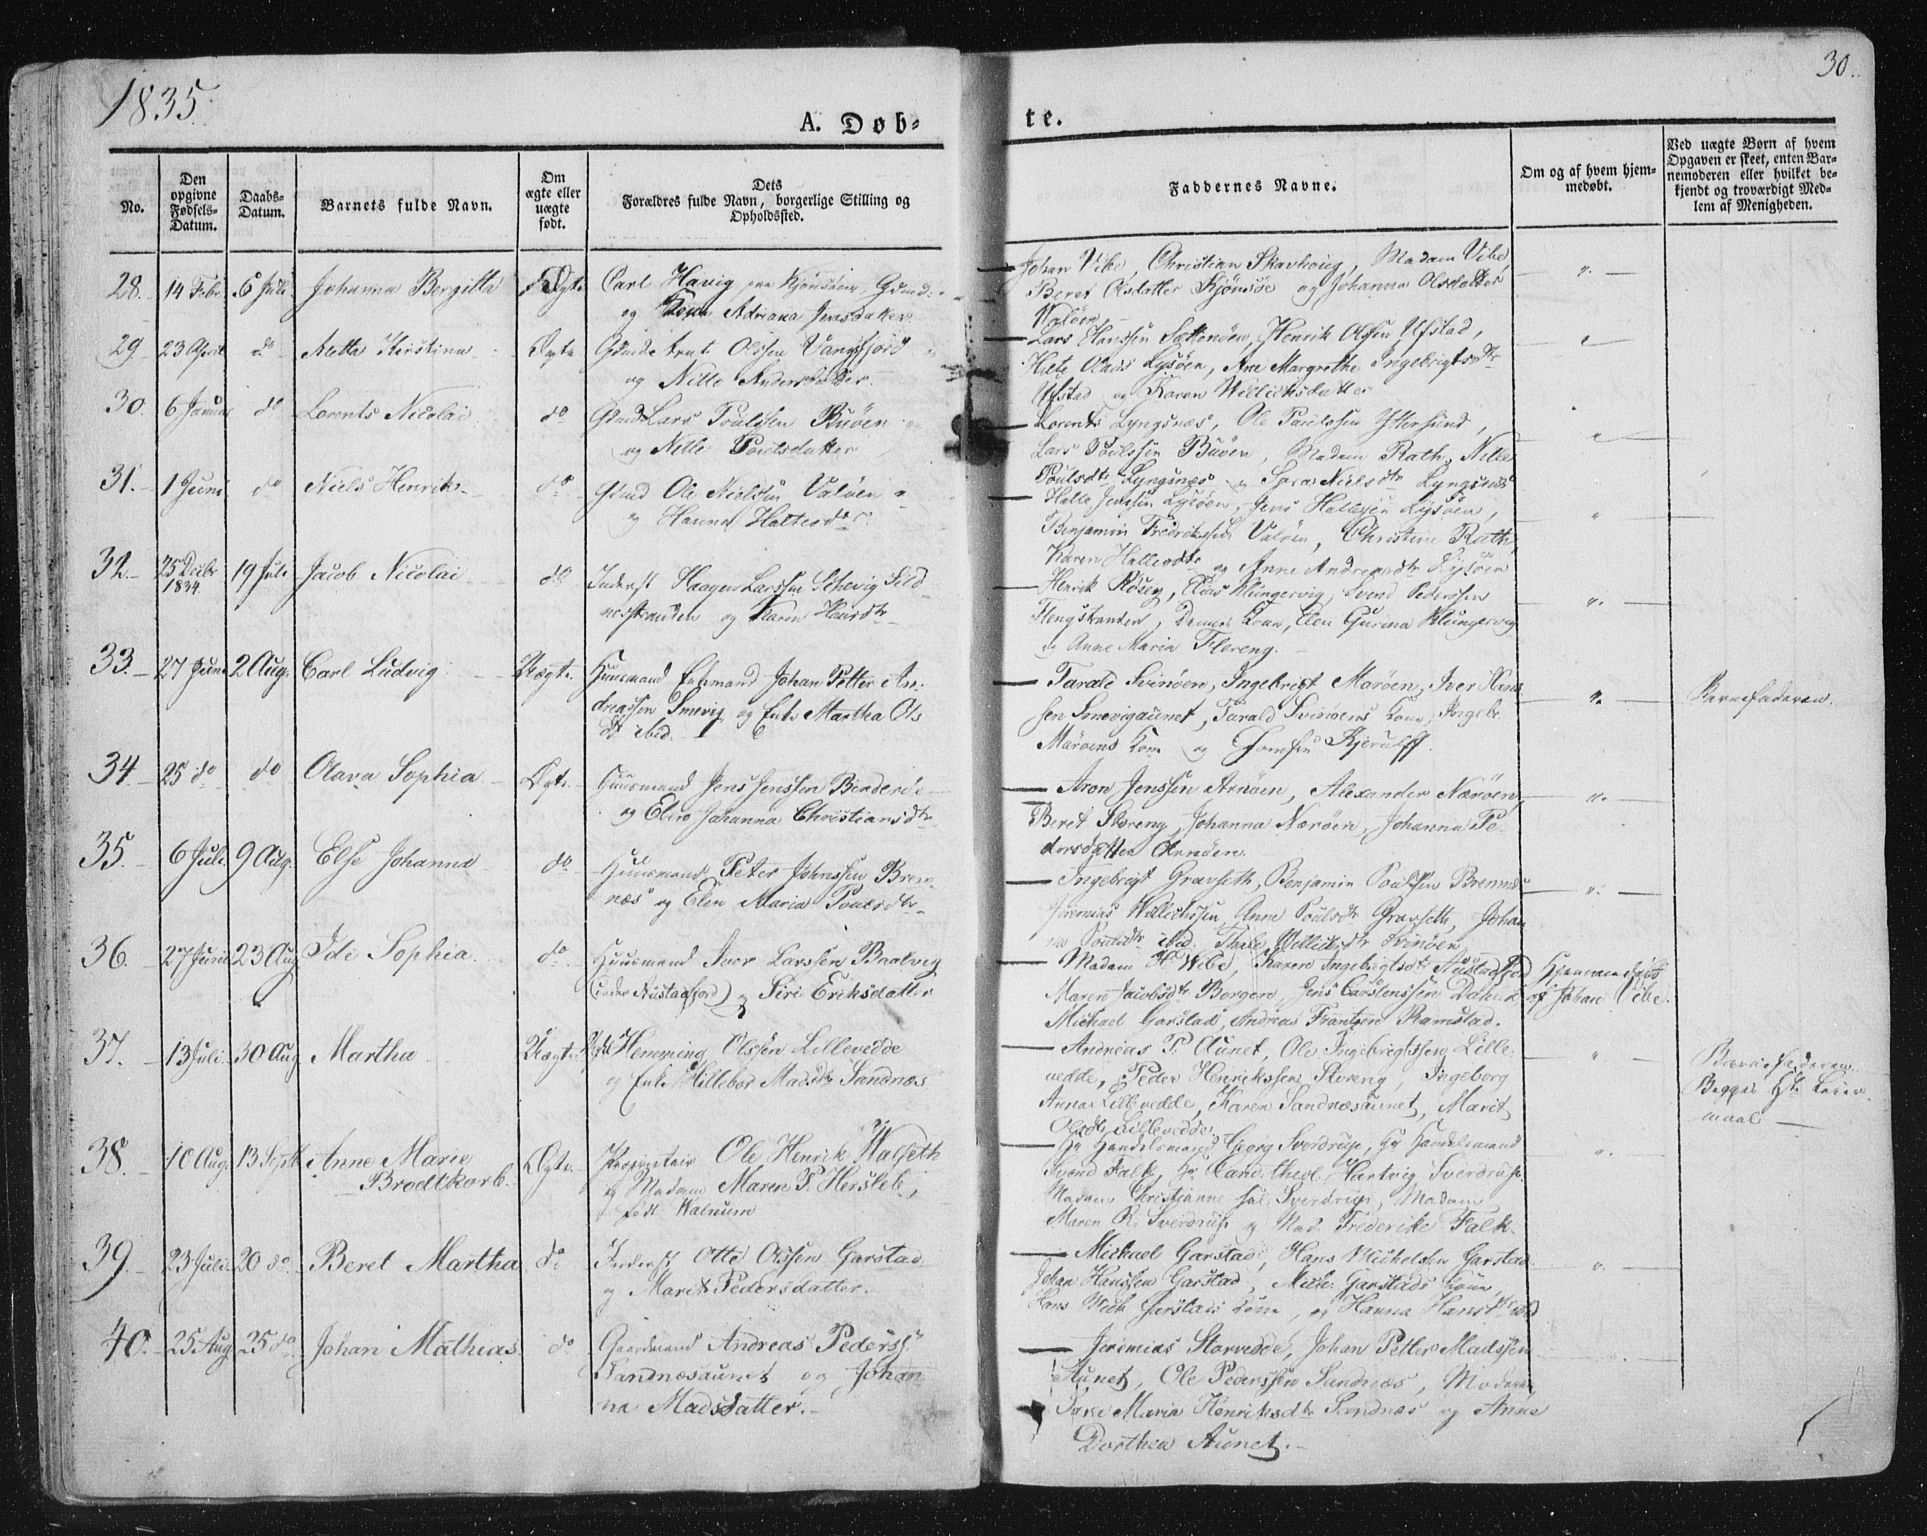 1835.
30.
A. Døb-
te.
No.
Den opgivne Fødsels-Datum.
Daabs-Datum.
Barnets fulde Navn.
Om ægte eller uægte født.
Dets Forældres fulde Navn, borgerlige Stilling og Opholdssted.
Faddernes Navne.
Om og af hvem hjemmedøbt.
Ved uægte Børn af hvem Opgaven er skeet, enten Barnemoderen eller hvilket bekjendt og troværdigt Medlem af Menigheden.
28. 14 Febr. 6 Juli Johanna Bergitta Ægte Carl Havig
og Kone Adriana Jensdatter
Johan Vibe, Christian Skavhoug, Madam Vibe,
Beret Olsdatter og Johanna Olsdatter
Valøen.
29 23 April do Aletta Kirstina Ægte Olssen Vansfjord
og Nille Andersdatter.
Lars Hanssen Olssen Ufstad,
Lysøen, Ane Margrethe Ingebrigtsdtr
Ufstad og Karen Willichsdatter
30. 6 Januar do Lorents Nicolai do Lars Poulssen Buøen
og Nille Poulsdatter
Lorents Lyngsnæs, Ole Paulssen Yttersund,
Lars Poulssen Buöen, Madam Rath, Nille
Poulsdtr Lyngsnæs og Sara Nielsdtr Lyngsnæs
31. 1 Juni do Niels Henrik do Ole Nielssen Valøen
og Hanna
Halle Jenssen Lysøen, Jens Hallesen Lysøen,
Benjamin Fredrikssen Valöen, Christine Rath,
Karen Hallesdtr og Anne Andreasdtr Lysøen
32. 25 Decbr 1834 19 Juli Jacob Nicolai do Inderst Haagen Larssen
og Karen Hansdtr
Henrik Røsey, Elias Klungervig, Svend Pederssen
Elen Gurina Klungervig
og Anne Maria Flereng.
33. 27 Juni 2 Aug. Carl Ludvig Uægte. Huusmand Enkemand Johan Petter An-
dreassen Smevig og Enke Martha Ols
dtr ibid.
Tarald Svinøen, Ingebrigt Marøen, Iver Hans
sen Smevigaunet, Tarald Svinøens Kone, Ingebr.
Marøens Kone og Jomfru Kjerulff.
Barnefaderen.
34. 25 do do Olava Sophia Ægte. Huusmand Jens Jenssen Binderøe
og Eliro Johanna Christiansdtr
Aron Jenssen Arnöen, Alexander Nærøen,
Beret Storeng, Johanna Nærøen, Johanna Pe-
dersdatter Arnøen.
35. 6 Juli 9 Aug. Else Johanna do Huusmand Peter Johnssen Brem-
næs og Elen Maria Poulsdtr
Ingebrigt Gravseth, Benjamin Poulssen Bremnæs
Jeremias Willichssen, Anne Poulsdtr Gravseth, Johan
na Poulsdtr ibid. Willichsdtr Svinøen
36. 27 Juni 23 Aug Ide Sophia do Huusmand Iver Larssen Baatvig
og Siri Eriksdatter
Madam Wibe, Karen Ingebrigtsdtr
Maren Jacobsdtr Borgen, Jens Carstenssen
Michael Garstad, Andreas Frantzen Ramstad.
Hjemmedøbt
af Johan Vibe.
37. 13 Juli 30 Aug Martha Uægte Hemming Olssen Lillevedde
og Enke Hillebor Madsdtr Sandnæs
Andreas P. Aunet, Ole Ingebrigtssen Lille-
vedde, Peder Henrikssen Storeng, Ingeborg
Anna Lillevedde, Karen Sandnæsaunet, Marit
Olsdtr Lillevedde.
Barnefaderen.
Begges Leier-
maal
38. 10 Aug. 13 Septbr Anne Marie
Brodtkorb. Ægte. Proprietair Ole Henrik Walseth
og Madam Maren P. Hersleb,
født Walnum
Hr Handelsmand Georg Sverdrup, Hr Handelsmand
Svend Falk, Hr Cand. theol. Hartvig Sverdrup.
Madam Christianne Sverdrup, Madam
Maren R. Sverdrup og Mad. Frederike Falk.
39. 23 Juli 20 do Beret Martha do Inderst Otte Olssen Garstad
og Marit Pedersdatter.
Mickael Garstad, Hans Michelsen Garstad
Johan Hanssen Garstad, Mich: Garstads Kone
Hans Mich Garstads Kone, og Hanna Hansdtr ibid
40. 25 Aug 25 do Johan Mathias do Gaardmand Andreas Pederss.
Sandnæsaunet og Johan
na Madsdatter.
Jeremias Storvedde, Johan Petter Madssen
Aunet, Ole Pederssen Sandnæs, Madam
Sara Maria Henriksdtr Sandnæs og Anne
Dorthea Aunet.